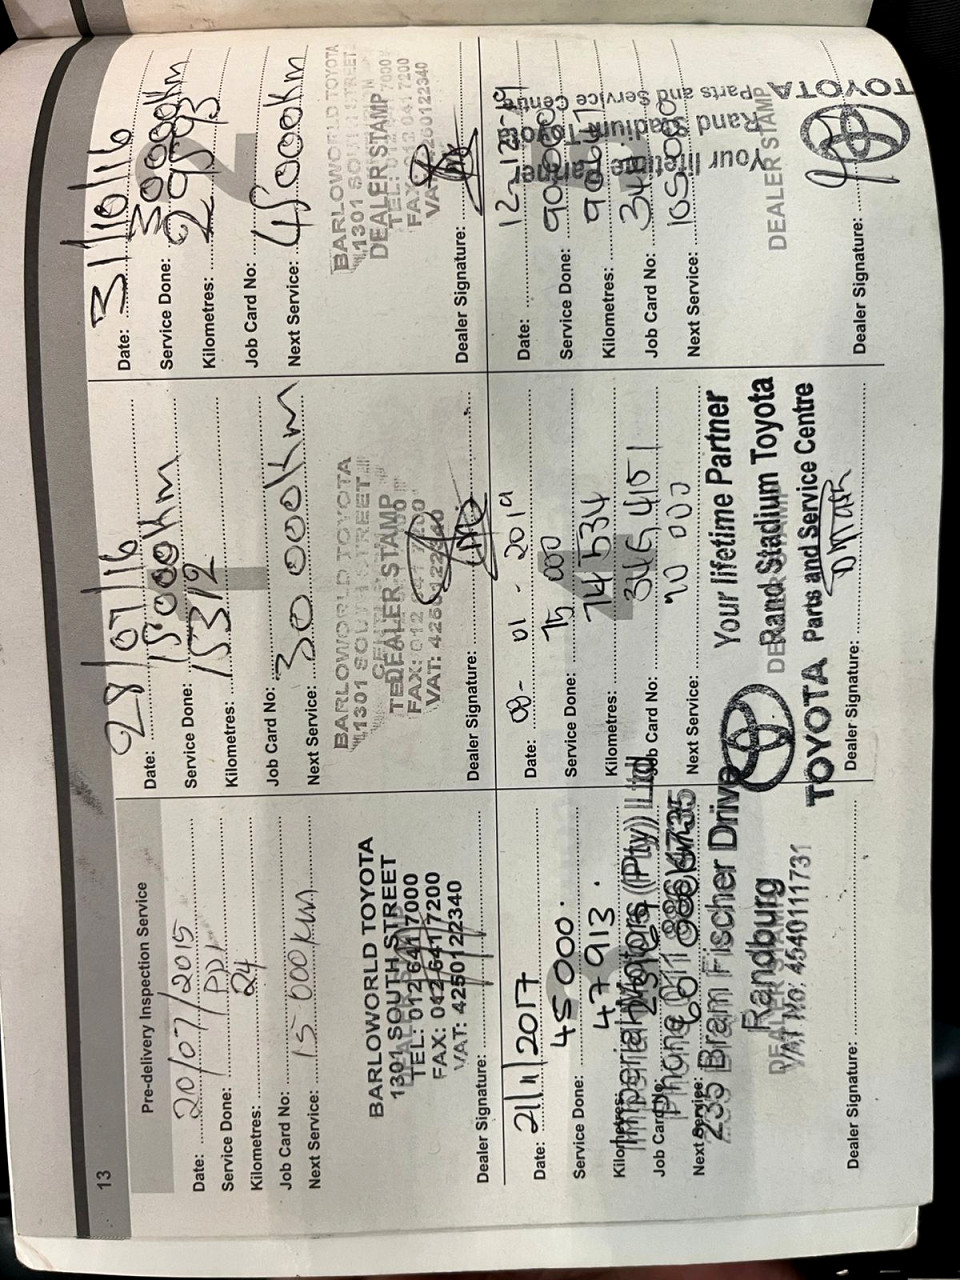 13
Pre-delivery Inspection Service
Date: 20/07/2015
Service Done: PDI
Kilometres: 24
Job Card No:
Next Service: 15 000km
BARLOWORLD TOYOTA
1301 SOUTH STREET
TEL: 012 641 7000
FAX: 012 641 7200
VAT: 4250122340
Dealer Signature:
Date: 28/07/16
Service Done: 15000km
Kilometres: 15312
Job Card No:
Next Service: 30 000km
BARLOWORLD TOYOTA
1301 SOUTH STREET
DEALER STAMP
VAT: 4250122340
Dealer Signature:
Date: 31/10/16
Service Done: 30000km
Kilometres: 29993
Job Card No:
Next Service: 45000km
2
BARLOWORLD TOYOTA
1301 SOUTH STREET
DEALER STAMP
Dealer Signature:
Date: 21/11/2017
Service Done: 45000.
Kilometres: 47913.
Job Card No:
Next Service: 60 000
Imperial Motors (Pty) Ltd
Phone 011 886
235 Bram Fischer Drive
Randburg
DEALER STAMP
VAT No. 4540111731
Dealer Signature:
Date: 08-01-2019
Service Done: 75 000
Kilometres: 74 534
Job Card No: 346 4151
Next Service: 90 000
4
Your lifetime Partner
Rand Stadium Toyota
TOYOTA Parts and Service Centre
Dealer Signature:
Date: 12-12-19
Service Done: 90 000
Kilometres:
Job Card No:
Next Service: 105 000
Your lifetime Partner
Rand Stadium Toyota
TOYOTA Parts and Service Centre
DEALER STAMP
Dealer Signature: